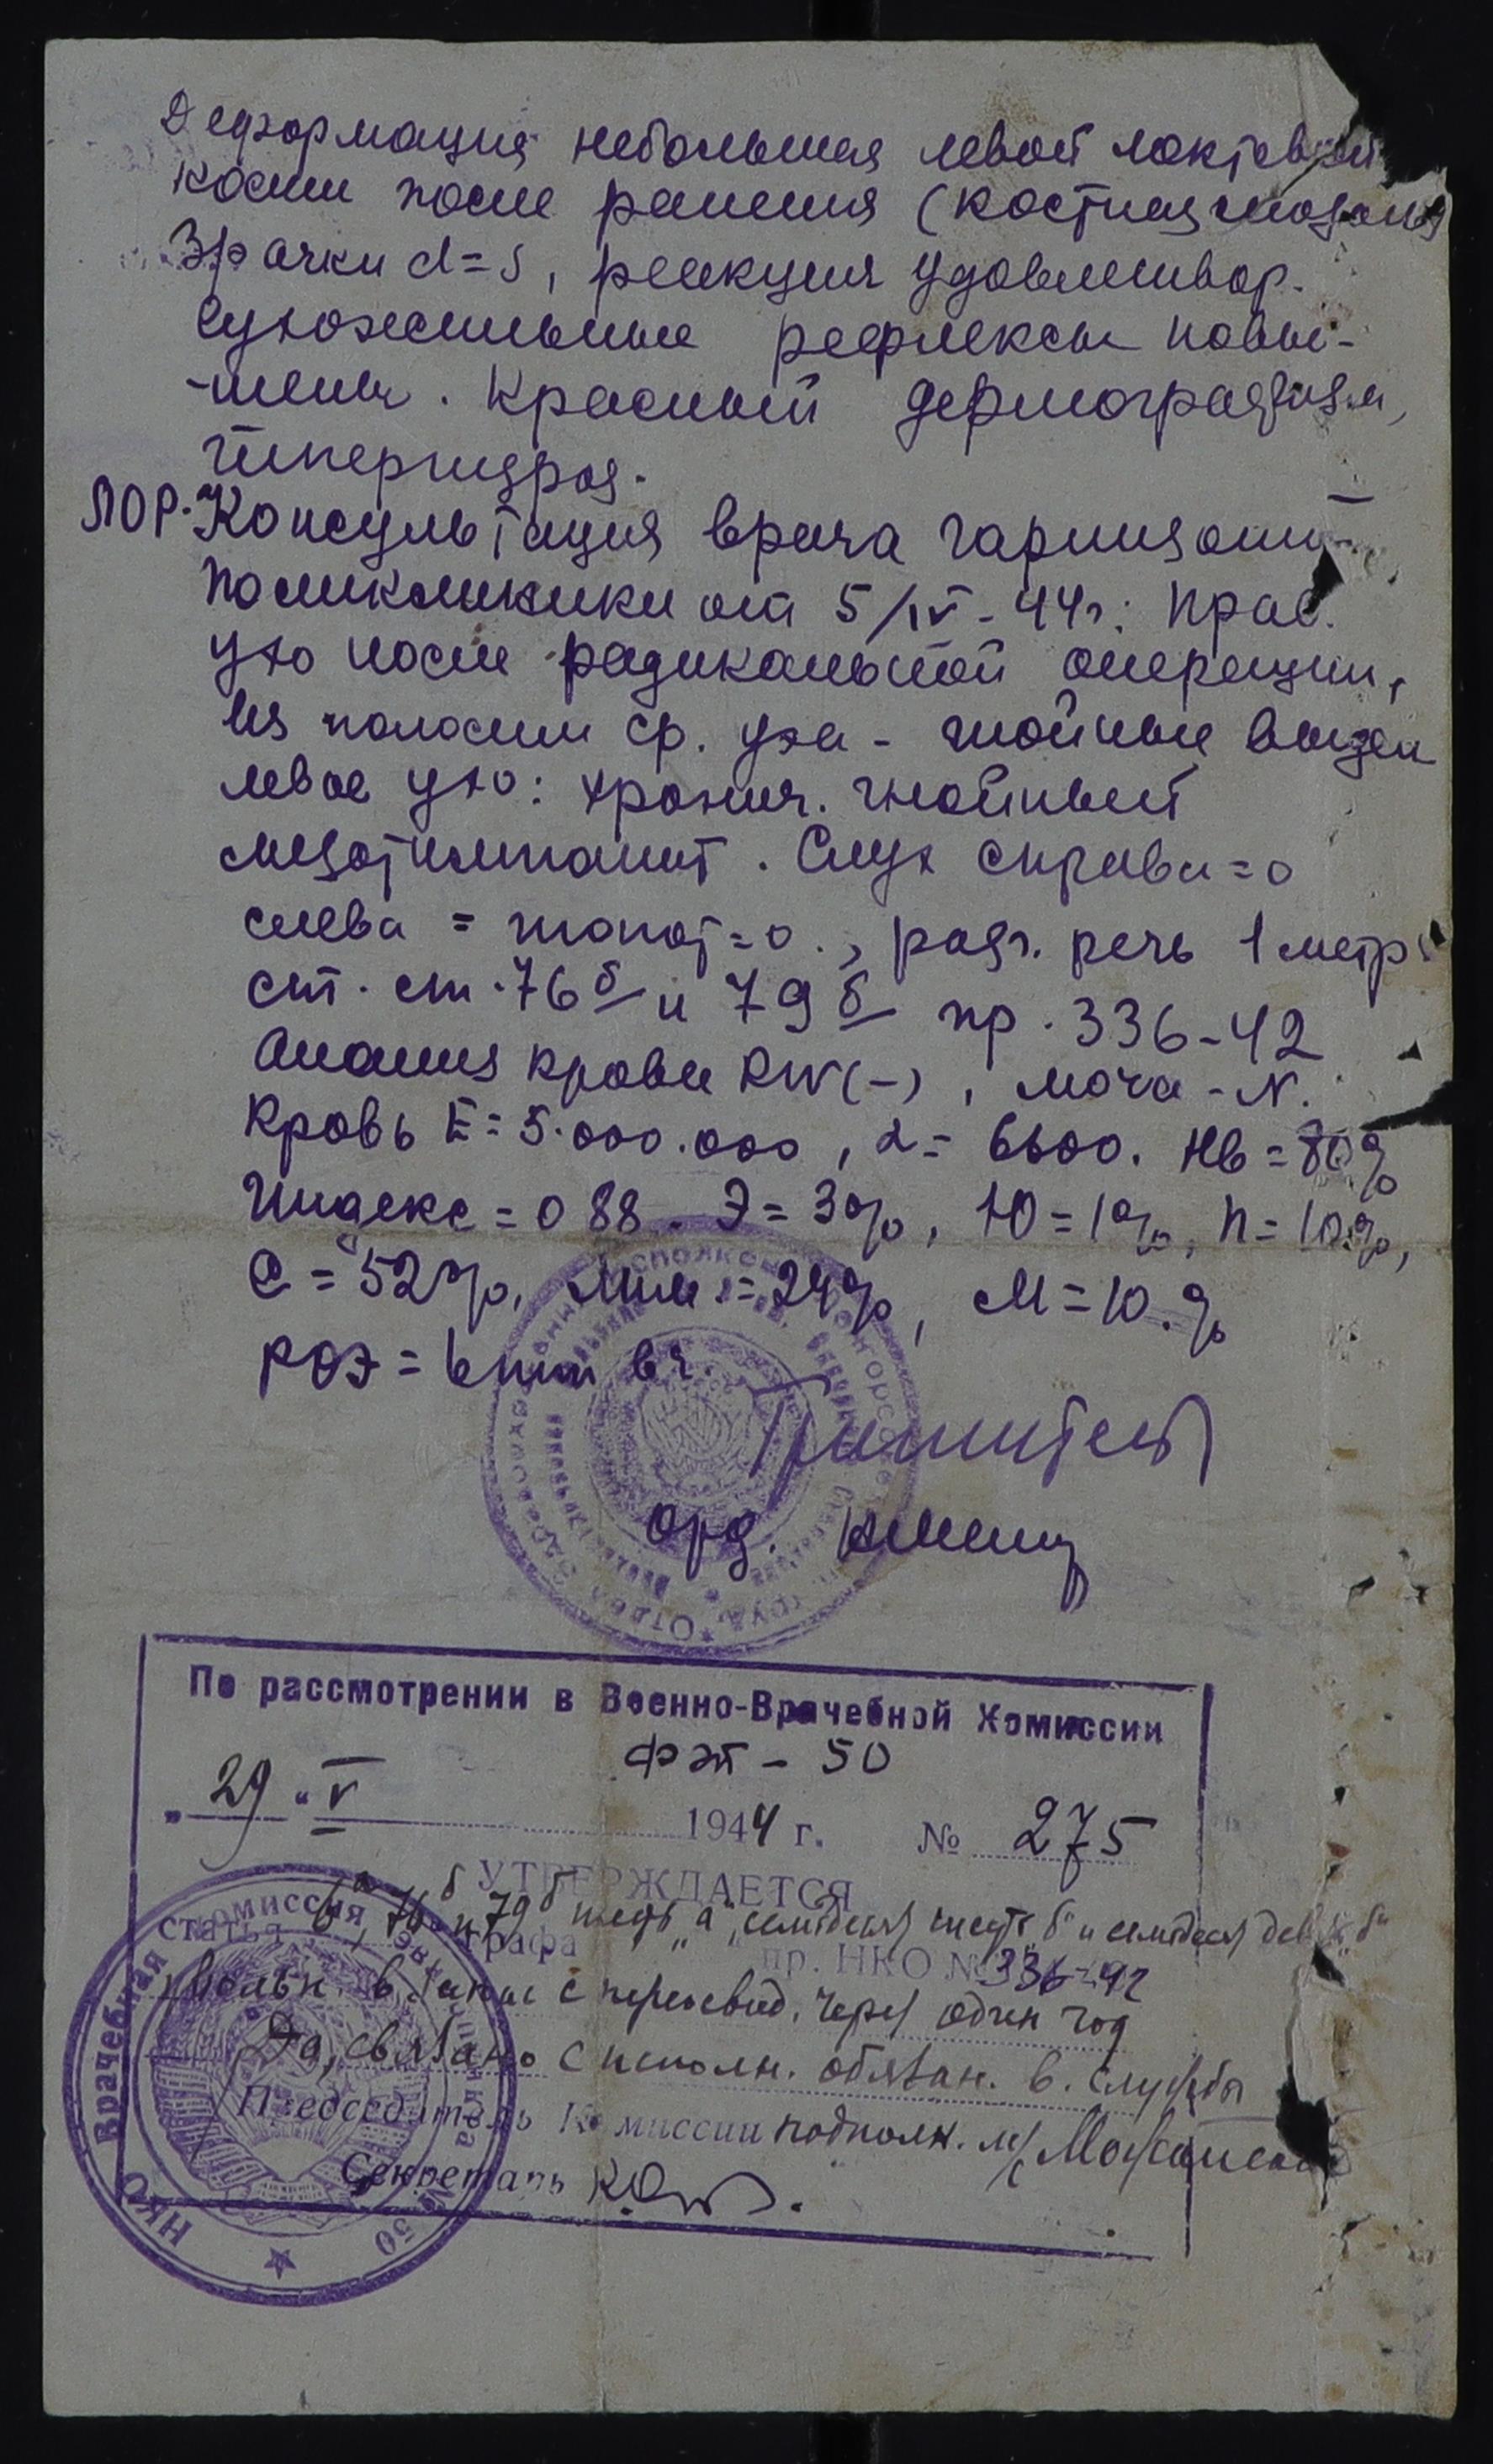 Деформация небольшая левой локтевой
кости после ранения (костная мозоль)
Зрачки d=s, реакция удовлетвор.
Сухожильные рефлексы повы-
-шены. Красный дермографизм,
гипергидроз.
ЛОР. Консультация врача гарнизон.
поликлиники от 5/IV-44г: Прав.
ухо после радикальной операции,
из полости ср. уха - гнойные выдел
левое ухо: хронич. гнойный
мезотимпанит. Слух справа=0
слева = шопот=0., разг. речь 1 метр
ст. ст. 76б и 79б пр. 336-42
Анализ крови RW(-), моча-N.
Кровь Е=5.000.000, L= 6600. Hb=80%
Индекс=0 88. Э=3%, Ю=1%, П=10%,
С=52%, Лим.=24%, М=10.%
РОЭ=6mm вч.
Орд.
По рассмотрении в Военно-Врачебной Комиссии
ФЭП - 50
„29" V 1944 г. № 275
УТВЕРЖДАЕТСЯ
Статья 6а, 76б и 79б шесть „а", семьдесят шесть „б" и семьдесят дев „б"
графа пр. НКО № 336-42
в запас с переосвид. через один год
Да, связано с исполн. обязан. в. службы
Председатель Комиссии подполк. м/с
Секретарь
Врачебная комиссия
НКО
50